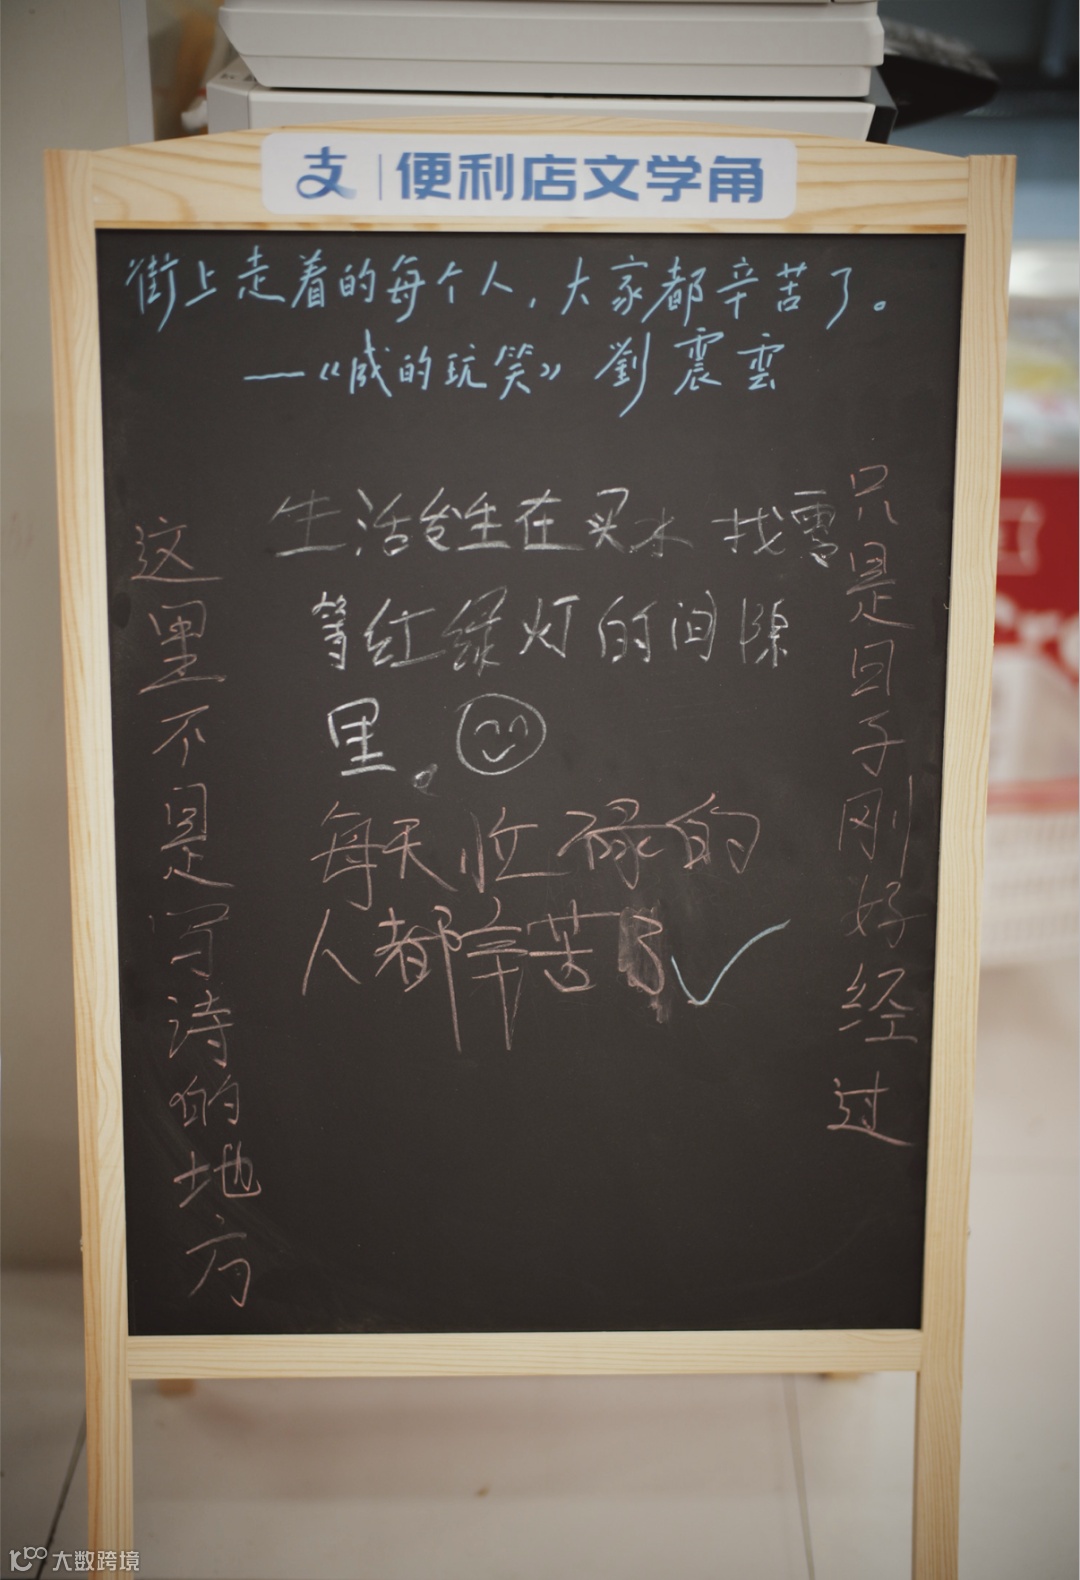 支 | 便利店文学角
街上走着的每个人，大家都辛苦了。
—《咸的玩笑》劉震雲
生活发生在买水 找零
等红绿灯的间隙
里。
每天忙禄的
人都辛苦了
这里不是写诗的地方
只是日子刚好经过
大数跨境